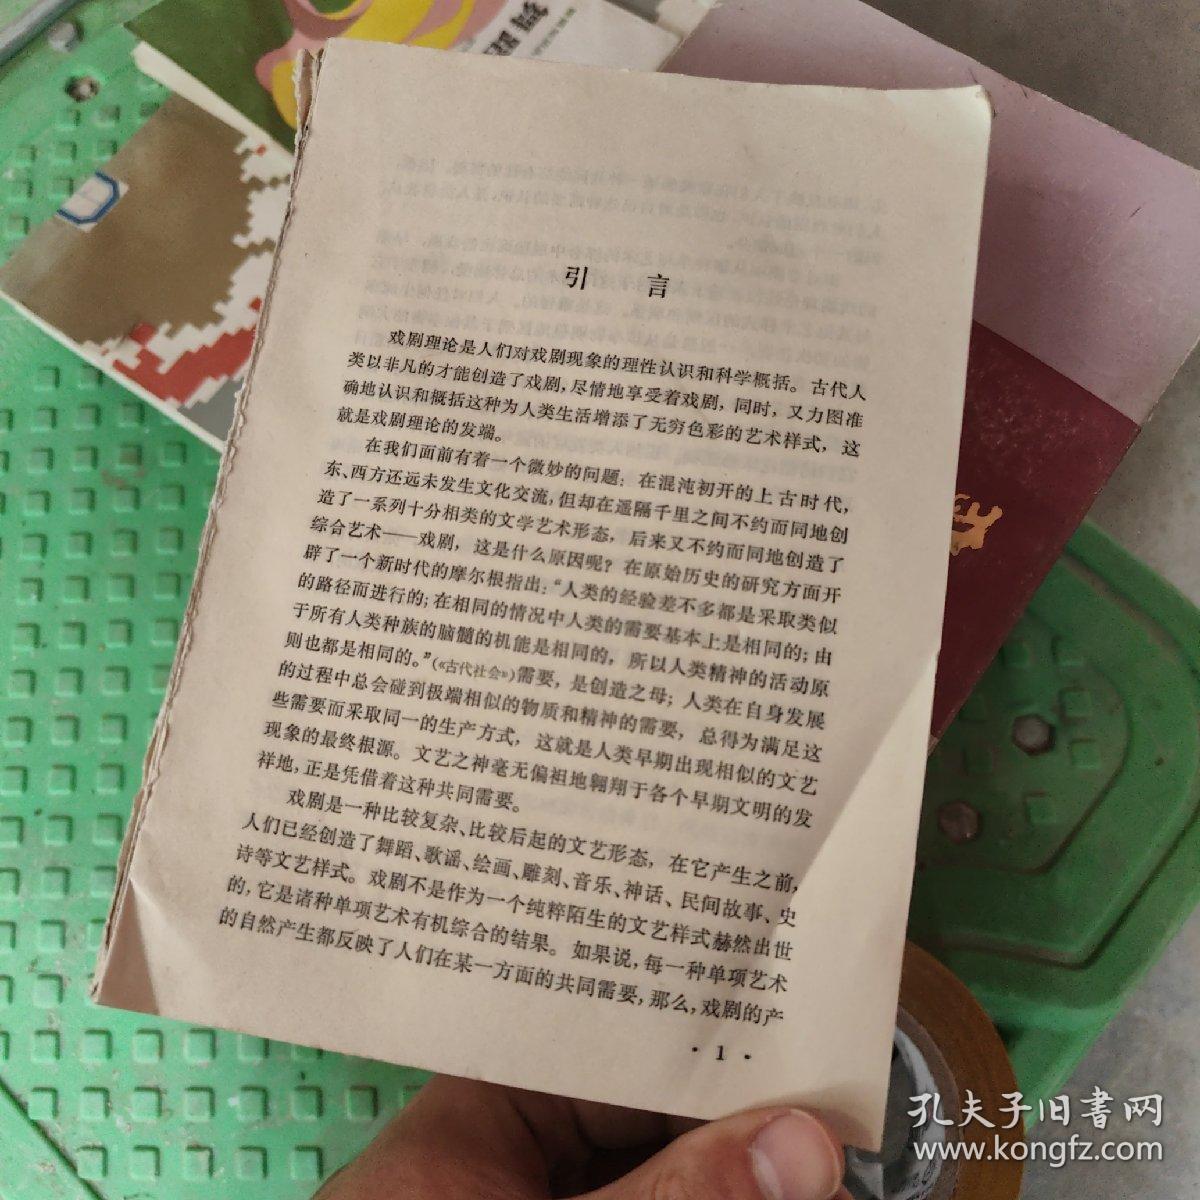 引 言
戏剧理论是人们对戏剧现象的理性认识和科学概括。古代人
类以非凡的才能创造了戏剧，尽情地享受着戏剧，同时，又力图准
确地认识和概括这种为人类生活增添了无穷色彩的艺术样式，这
就是戏剧理论的发端。
在我们面前有着一个微妙的问题：在混沌初开的上古时代，
东、西方还远未发生文化交流，但却在遥隔千里之间不约而同地创
造了一系列十分相类的文学艺术形态，后来又不约而同地创造了
综合艺术——戏剧，这是什么原因呢？在原始历史的研究方面开
辟了一个新时代的摩尔根指出：“人类的经验差不多都是采取类似
的路径而进行的；在相同的情况中人类的需要基本上是相同的；由
于所有人类种族的脑髓的机能是相同的，所以人类精神的活动原
则也都是相同的。”（《古代社会》）需要，是创造之母；人类在自身发展
的过程中总会碰到极端相似的物质和精神的需要，总得为满足这
些需要而采取同一的生产方式，这就是人类早期出现相似的文艺
现象的最终根源。文艺之神毫无偏袒地翱翔于各个早期文明的发
祥地，正是凭借着这种共同需要。
戏剧是一种比较复杂、比较后起的文艺形态，在它产生之前，
人们已经创造了舞蹈、歌谣、绘画、雕刻、音乐、神话、民间故事、史
诗等文艺样式。戏剧不是作为一个纯粹陌生的文艺样式赫然出世
的，它是诸种单项艺术有机综合的结果。如果说，每一种单项艺术
的自然产生都反映了人们在某一方面的共同需要，那么，戏剧的产
· 1 ·
孔夫子旧書网
www.kongfz.com